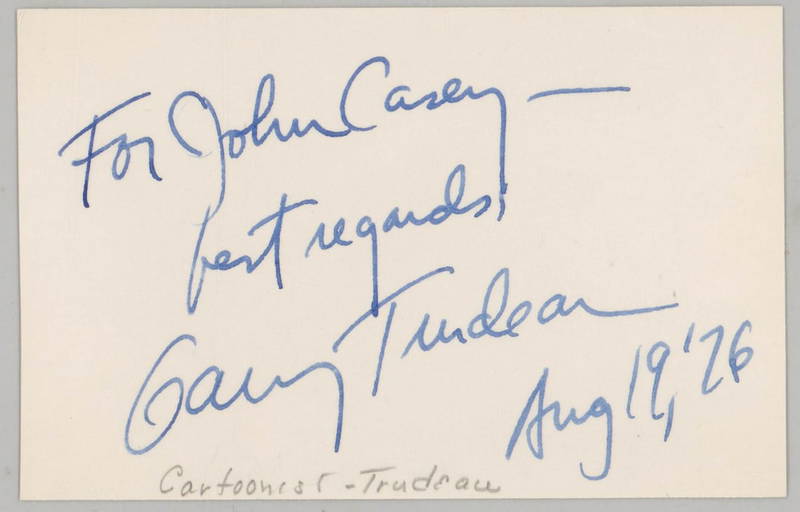 For John Casey —
best regards,
Garry Trudeau
Aug 19, '76
Cartoonist - Trudeau